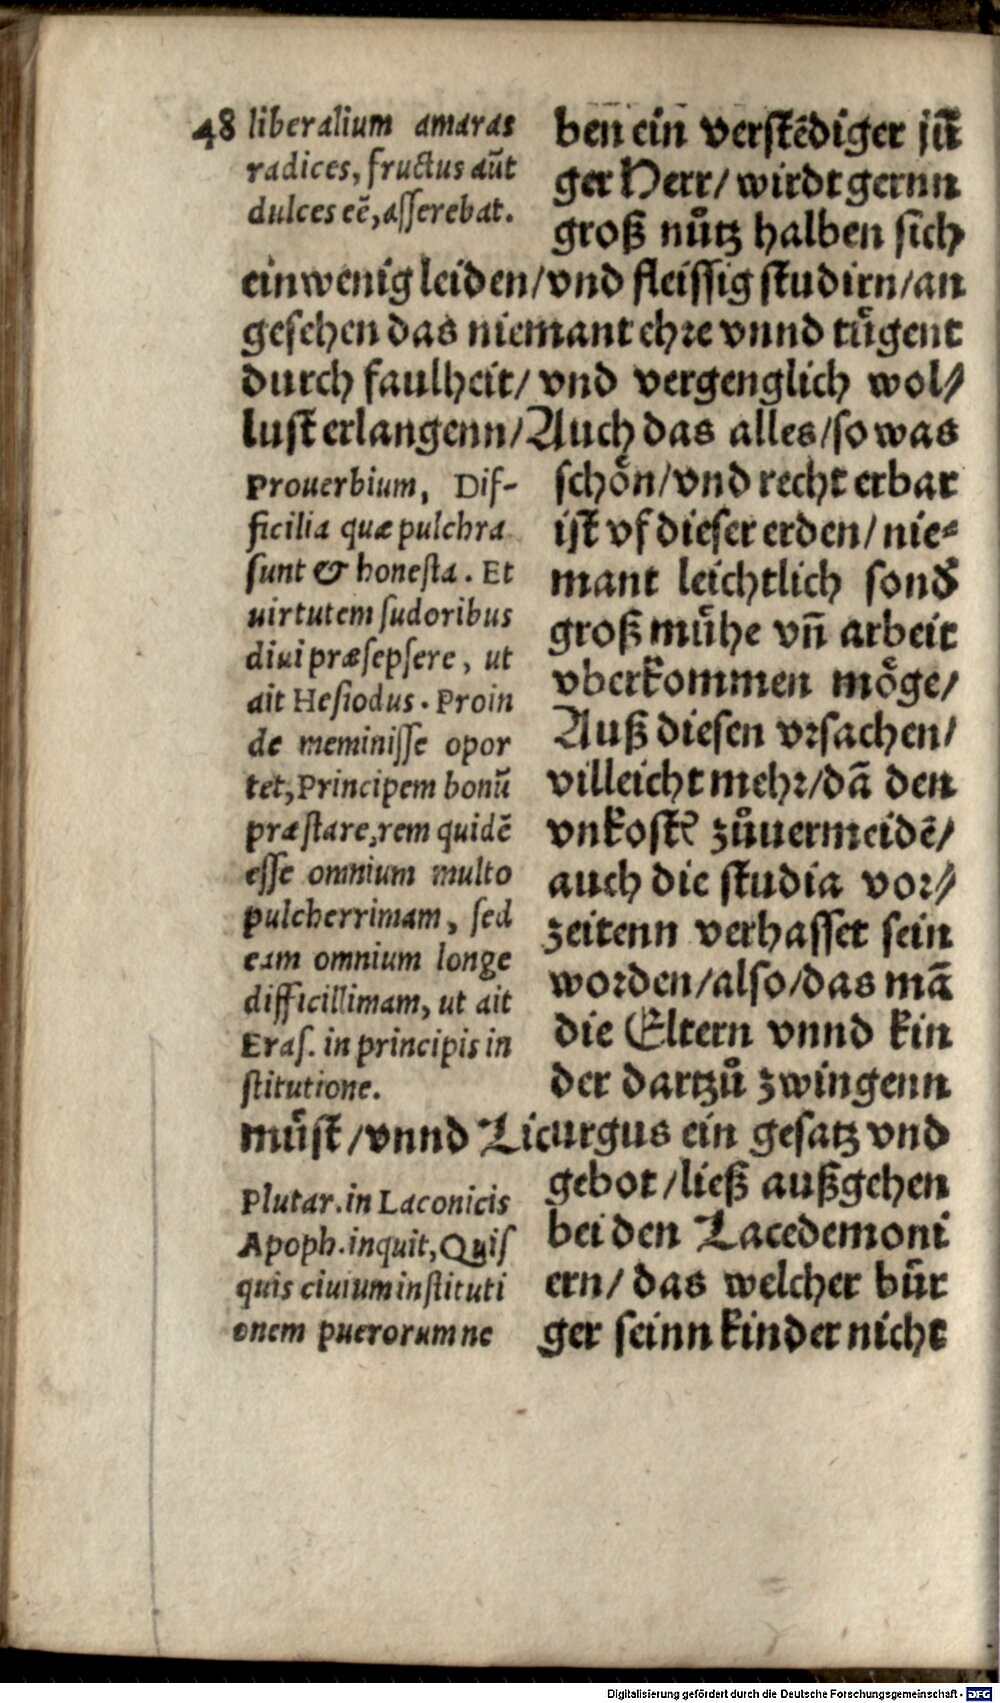 48 liberalium amaras
radices, fructus aūt
dulces eē, aſſerebat.
ben ein verſtēdiger jū
ger Herr/ wirdt gernn
groß nůtz halben ſich
ein wenig leiden/ vnd fleiſſig ſtudirn/ an
geſehen das niemant ehꝛe vnnd tůgent
durch faulheit/ vnd vergenglich wol⸗
luſt erlangenn/ Auch das alles/ ſo was
Prouerbium, Dif-
ficilia quæ pulchra
ſunt & honeſta. Et
uirtutem ſudoribus
diui præſepſere, ut
ait Heſiodus. Proin
de meminiſſe opor
tet, Principem bonū
præſtare, rem quidē
eſſe omnium multo
pulcherrimam, ſed
eam omnium longe
difficillimam, ut ait
Eraſ. in principis in
ſtitutione.
ſchoͤn/ vnd recht erbar
iſt vf dieſer erden/ nie⸗
mant leichtlich ſond̕
groß muͤhe vn̄ arbeit
vberkommen moͤge/
Auß dieſen vꝛſachen/
villeicht mehꝛ/ dā den
vnkoſtē zůuermeidē/
auch die ſtudia voꝛ⸗
zeitenn verhaſſet ſein
woꝛden/ alſo/ das mā
die Eltern vnnd kin
der dartzů zwingenn
muͤſt/ vnnd Licurgus ein geſatz vnd
Plutar. in Laconicis
Apoph. inquit, Quiſ
quis ciuium inſtituti
onem puerorum ne
gebot/ ließ außgehen
bei den Lacedemoni
ern/ das welcher buͤr
ger ſeinn kinder nicht
Digitalisierung gefördert durch die Deutsche Forschungsgemeinschaft - DFG